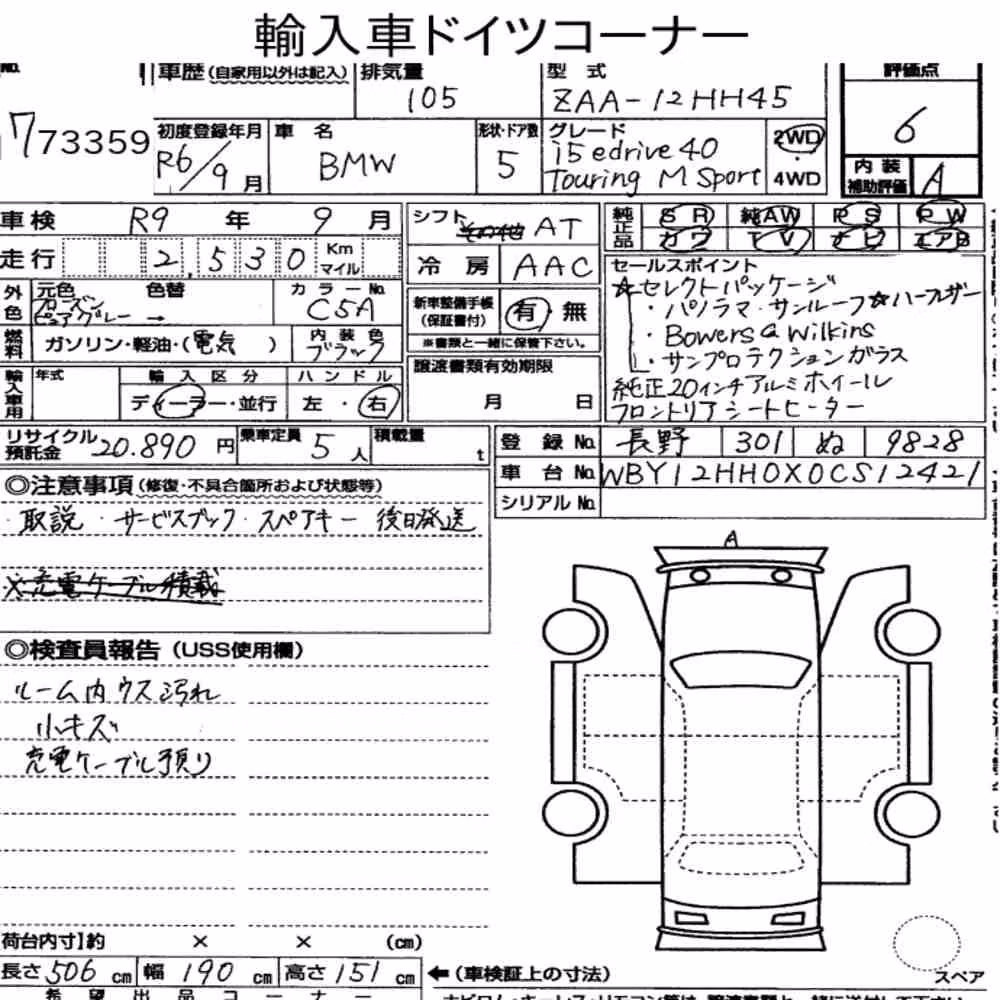 輸入車ドイツコーナー
No. 車歴 (自家用以外は記入) 排気量 105 型式 ZAA-12HH45 評価点 6
73359 初度登録年月 R6/9月 車名 BMW 形状・ドア数 5 グレード i5 edrive 40 Touring M Sport 2WD・4WD 内装補助評価 A
車検 R9年9月 シフト AT 純正品 SR 純AW PS PW
走行 2,530 Km マイル 冷房 AAC カワ TV ナビ エアB
外色 元色 色替 カラーNo. C5A 新車整備手帳(保証書付) 有・無 ※書類と一緒に保管下さい。
セールスポイント
☆セレクトパッケージ
・パノラマ・サンルーフ ☆ハーフレザー
・Bowers & Wilkins
・サンプロテクションガラス
純正20インチアルミホイール
フロントリアシートヒーター
燃料 ガソリン・軽油・(電気) 内装色 ブラック
輸入車用 年式 輸入区分 ディーラー・並行 ハンドル 左・右 譲渡書類有効期限 月 日
リサイクル預託金 20.890円 乗車定員 5人 積載量 t
登録No. 長野 301 ぬ 9828
車台No. WBY12HH0X0CS12421
シリアルNo.
◎注意事項 (修復・不具合箇所および状態等)
・取説・サービスブック・スペアキー 後日発送
※充電ケーブル積載
◎検査員報告 (USS使用欄)
ルーム内ウス汚れ
小キズ
充電ケーブル預り
A
荷台内寸】約 × × (cm)
長さ 506 cm 幅 190 cm 高さ 151 cm ←(車検証上の寸法)
スペア
希望出品コーナー